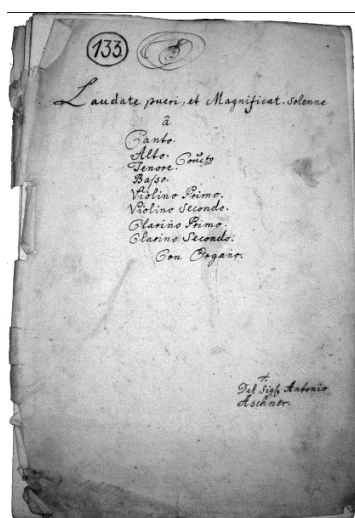 133.
Laudate pueri, et Magnificat. Solenne
â
Canto.
Alto.
Tenore. Conc̃to
Basso.
Violino Primo.
Violino Secondo.
Clarino Primo.
Clarino Secondo.
Con Organo.
Del Sigl. Antonio
Aschner.